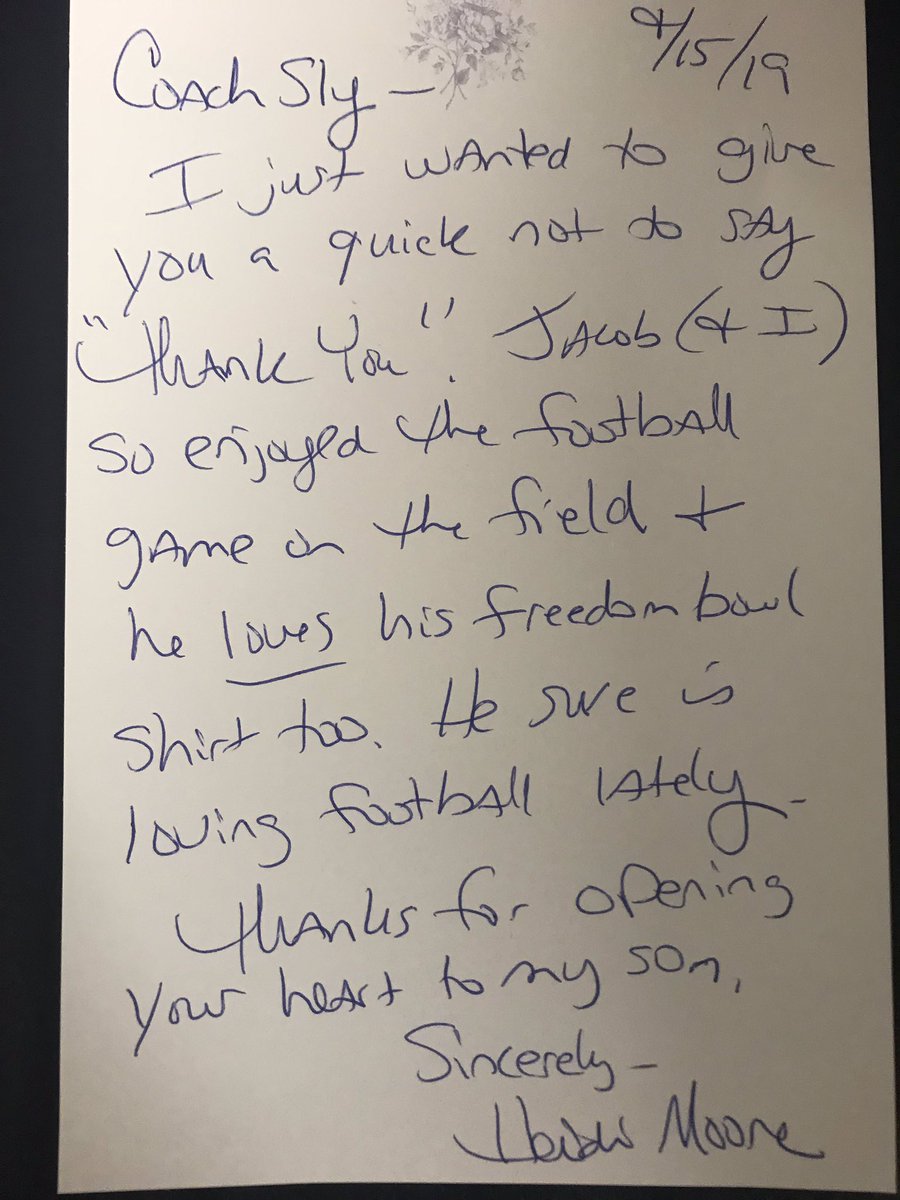 Coach Sly — 4/15/19
I just wanted to give
you a quick not to say
"Thank You". Jacob (& I)
so enjoyed the football
game on the field +
he loves his freedom bowl
shirt too. He sure is
loving football lately.
Thanks for opening
your heart to my son.
Sincerely —
Heidi Moore